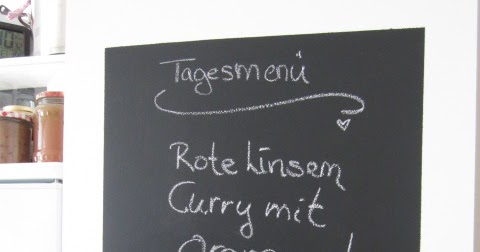 Tagesmenü
Rote Linsen
Curry mit